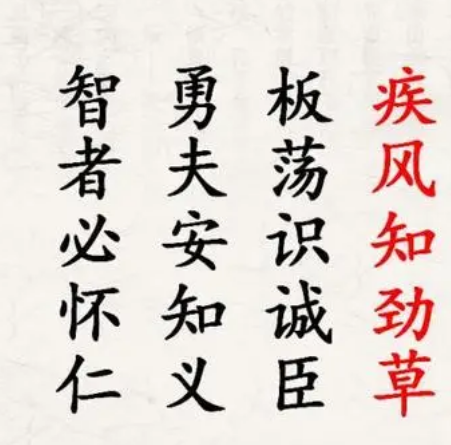 疾风知劲草
板荡识诚臣
勇夫安知义
智者必怀仁